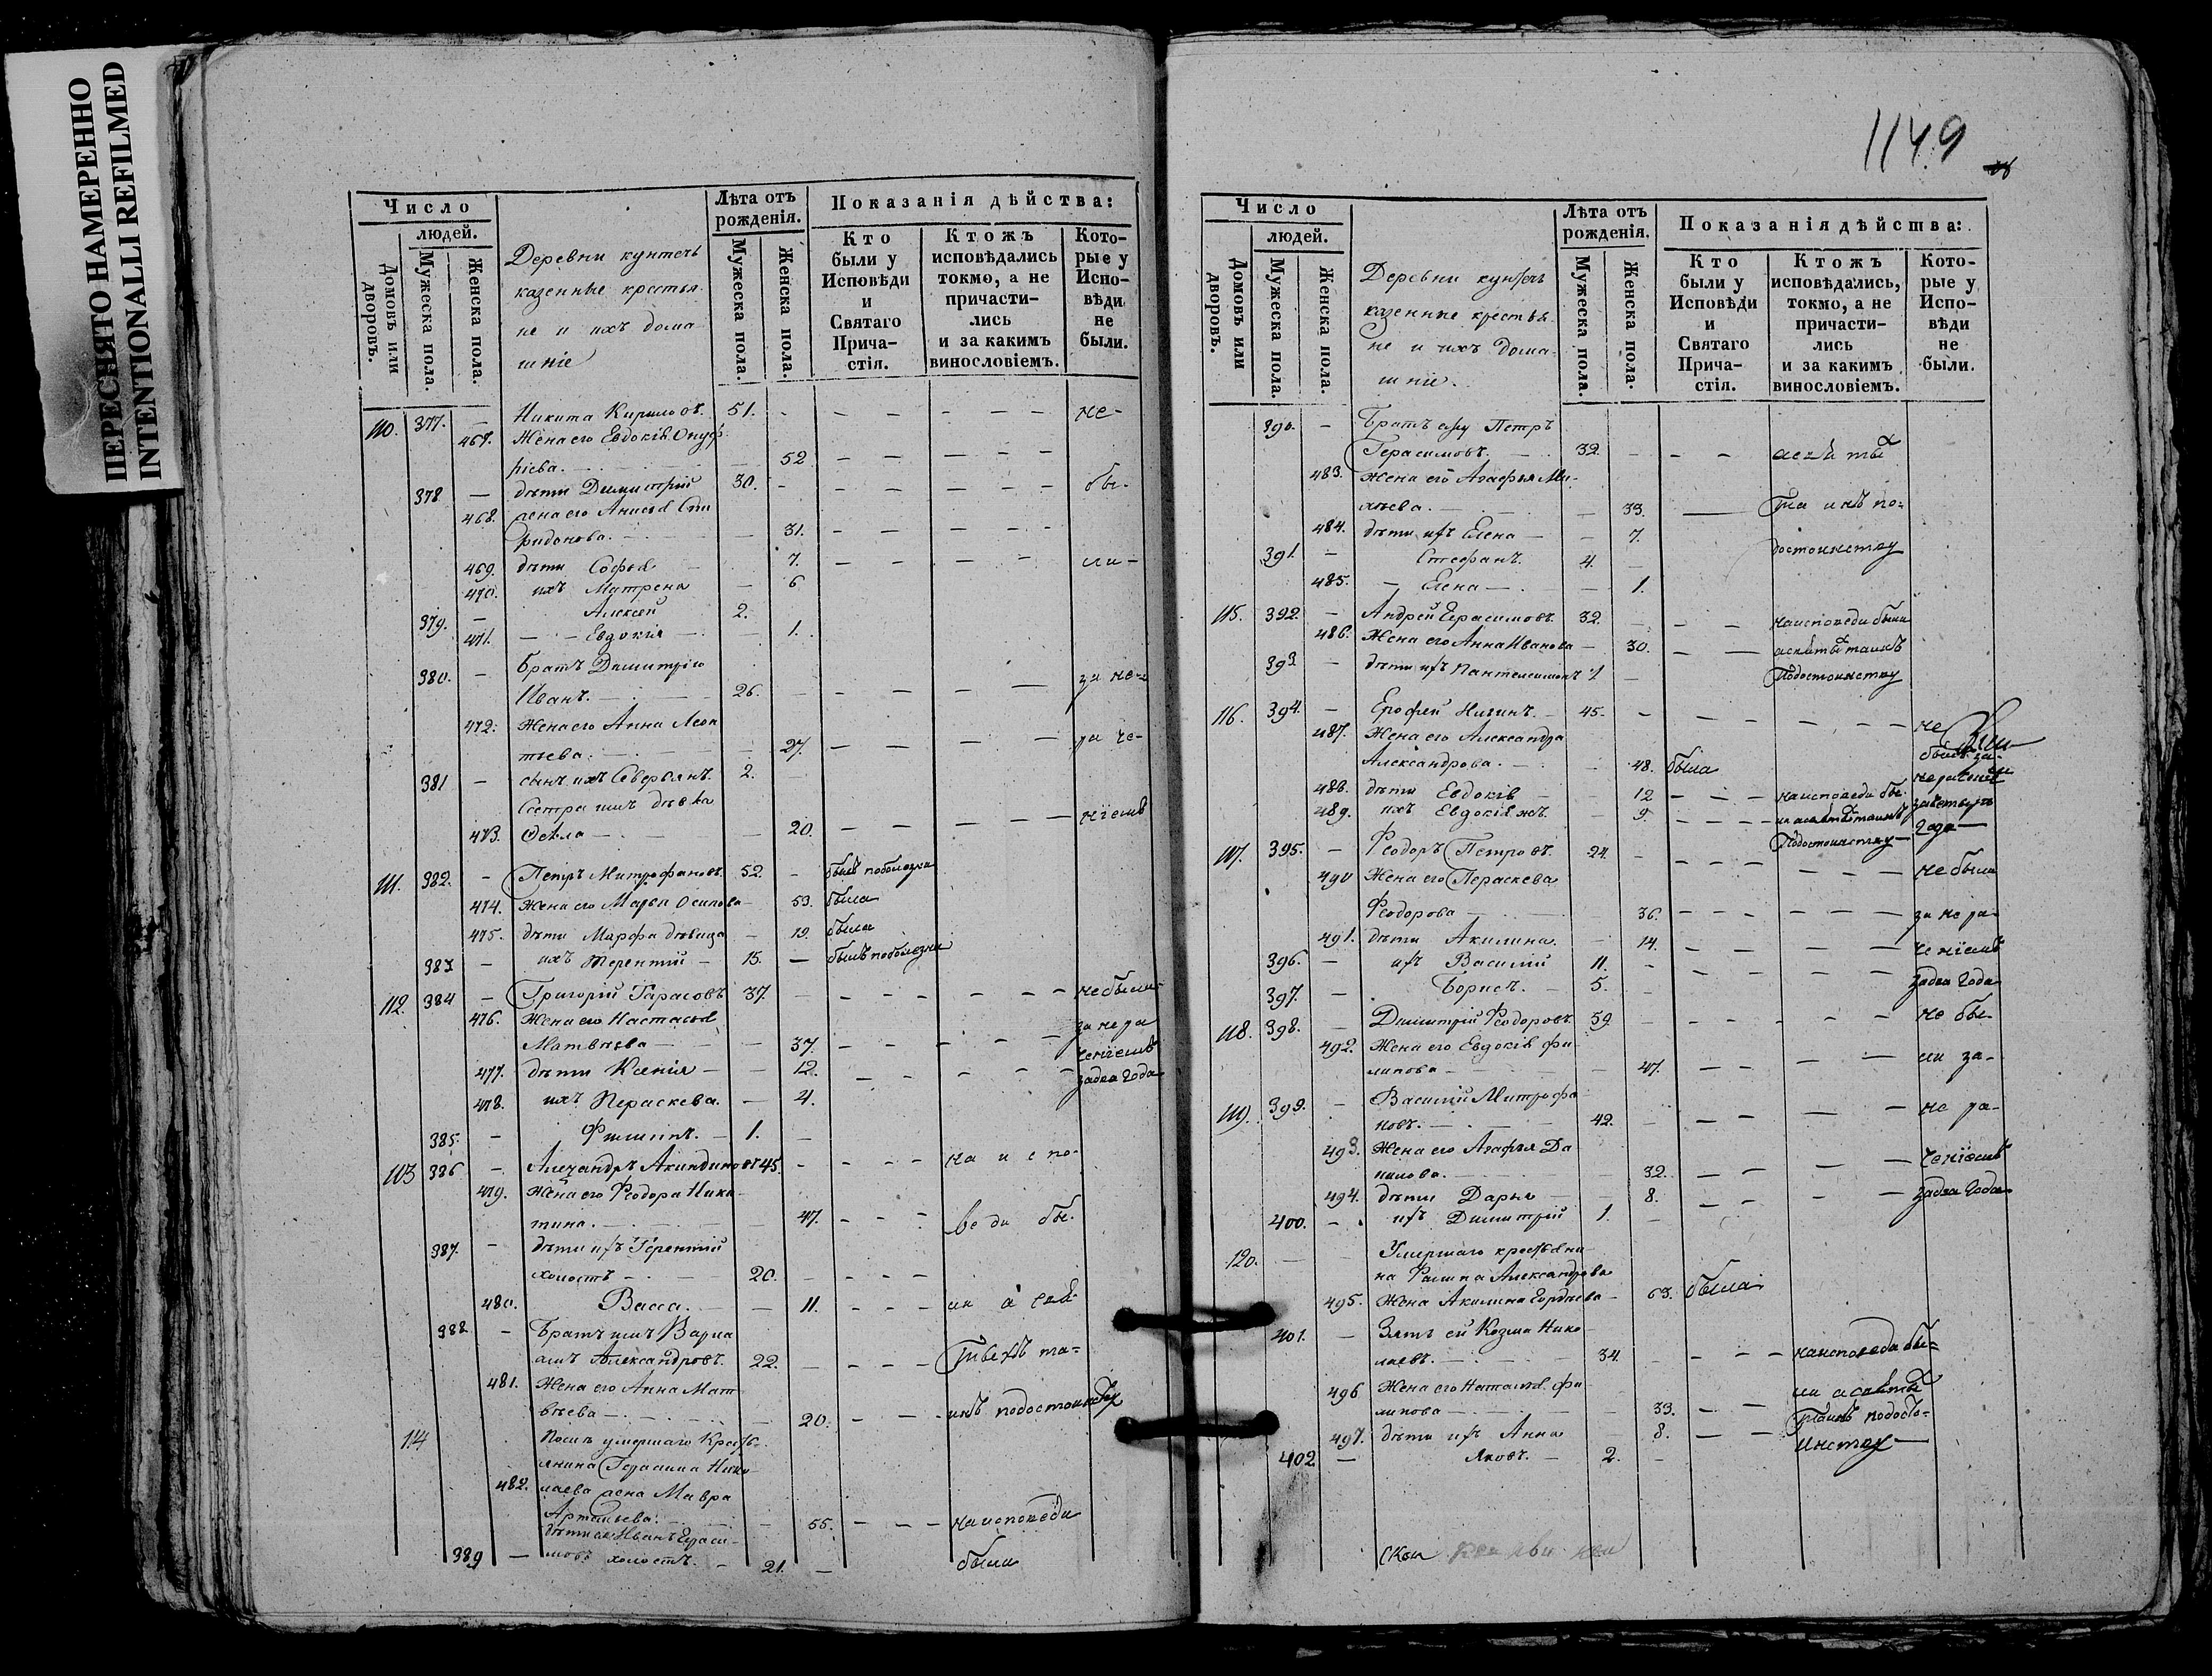 ПЕРЕСНЯТО НАМЕРЕННО
INTENTIONALLI REFILMED
Число
людей.
Домовъ или дворовъ.
Мужеска пола.
Женска пола.
Деревни
казенные крестья-
не и ихъ дома-
шніе
Лѣта отъ
рожденія.
Мужеска пола.
Женска пола.
Показанія дѣйства:
Кто были у Исповѣди и Святаго Прича-стія.
Ктожъ исповѣдались токмо, а не причасти-лись и за какимъ винословіемъ.
Кото-рые у Испо-вѣди не были.
110. 377. – Никита Кириловъ. 51. – – – – – – не-
467. Жена его Евдокія Онуф-
ріева. – 52 – – – – – –
378 – дѣти Димитрій 30. – – – – – – бы-
468. жена его Анисья Спи
ридонова. – 31. – – – – – –
469. дѣти Софья – 7. – – – – ли-
470. ихъ Матрена – 6
379. – Алексей 2.
471. – – Евдокія – – 1.
380. – братъ Димитрію
Иванъ. – 26. – – – – – за не-
472. Жена его Анна Леон
тьева. – – 27. – – – – ра че-
381 – сынъ ихъ Северьянъ. 2. –
Сестра имъ дѣвка
473. Фекла – – 20. – – – – – – ніемъ
111. 382. – Петръ Митрофановъ. 52. – былъ
474. Жена его Марья Осипова – 53. была
475. дѣти Марфа дѣвица – 19. была
383 – ихъ Терентий – 15. – былъ
112. 384 – Григорій Гарасовъ 37. – – – – – – небыли
476. Жена его Настасья за не ра
Матвѣева – – 37. – – – – – – ченіемъ
477. дѣти Ксенія – – 12. – – – – – – задва года
478. ихъ Параскева. – 4.
385. – Филиппъ. – 1. –
113 386 – Алеѯандръ Акиндиновъ 45. – – – – на испо-
479. Жена его Феодора Ники-
тина. – – 47. – – – веди бы-
387. – дѣти ихъ Терентій
холостъ – 20. – – – –
480. Васса. – – 11. – – – ли а свя-
388 – Братъ имъ Варла
амъ Александровъ. 22. – – – – тыхъ та-
481. Жена его Анна Мат
вѣева – – 20. – – – инъ
114 Послѣ умершаго Крестья-
янина Герасима Нико-
482. лаева жена Мавра
Артемьева. – 55. – – – на исповеди
дѣти ея Иванъ Гераси-
389 – мовъ холостъ. – 21. – были
1149
Число
людей.
Домовъ или дворовъ.
Мужеска пола.
Женска пола.
Деревни
казенные крестья-
не и ихъ дома-
шніе.
Лѣта отъ
рожденія.
Мужеска пола.
Женска пола.
Показанія дѣйства:
Кто были у Исповѣди и Святаго Прича-стія.
Ктожъ исповѣдались, токмо, а не причасти-лись и за какимъ винословіемъ.
Кото-рые у Испо-вѣди не были.
390. – Братъ ему Петръ
Герасимовъ. – 32. – – – а святы
483. Жена его Агафья Ми-
хѣева. – – 33. – таинъ по-
484. дѣти ихъ Елена – – 7.
391. – Стефанъ. 4. –
485. – Елена – – 1.
115. 392. – Андрей Герасимовъ. 32. – – – на исповеди были
486. Жена его Анна Иванова – 30. – – а святы таинъ
393 – дѣти ихъ Пантелеимонъ 1 –
116. 394. – Ерофей – 45. – – – – – – – не
487. Жена его Александра
Александрова. – 48. была
488. дѣти Евдокія – – 12 – – – на исповеди бы-
489. ихъ Евдокія жъ. – 9. – – – – года –
117. 395. – Феодоръ Петровъ. 24. – – – – – – не были
490 Жена его Параскева
Феодорова – – 36. – – – – – – за не ра-
491. дѣти Акилина. – 14. – – – – – – ченіемъ
396. – ихъ Василій 11. – – – – – – –
397. – Борисъ. – 5. – задва года
118. 398. – Димитрій Феодоровъ. 59. – – – – – – не бы-
492. Жена его Евдокія Фи-
липова – – 47. – – – – ли за-
119. 399. – Василій Митрофа-
новъ. – 42. – – – – не ра-
493. Жена его Агафья Да
нилова. – 32. – – – – ченіемъ
494. дѣти Дарья – – 8. – – – – задва года
400. – ихъ Димитрій 1. –
120. – – Умершаго крестьяни-
на Филипа Александрова
495. Жена Акилина Гордѣева – 63. была
401. – Зять ей Козма Нико
лаевъ. – 34. – – – – на исповеди бы-
496 Жена его Наталья Фи- ли а святы
липова – – 33. – – таинъ
497. дѣти ихъ Анна 8. – –
402 – Яковъ. – 2. –